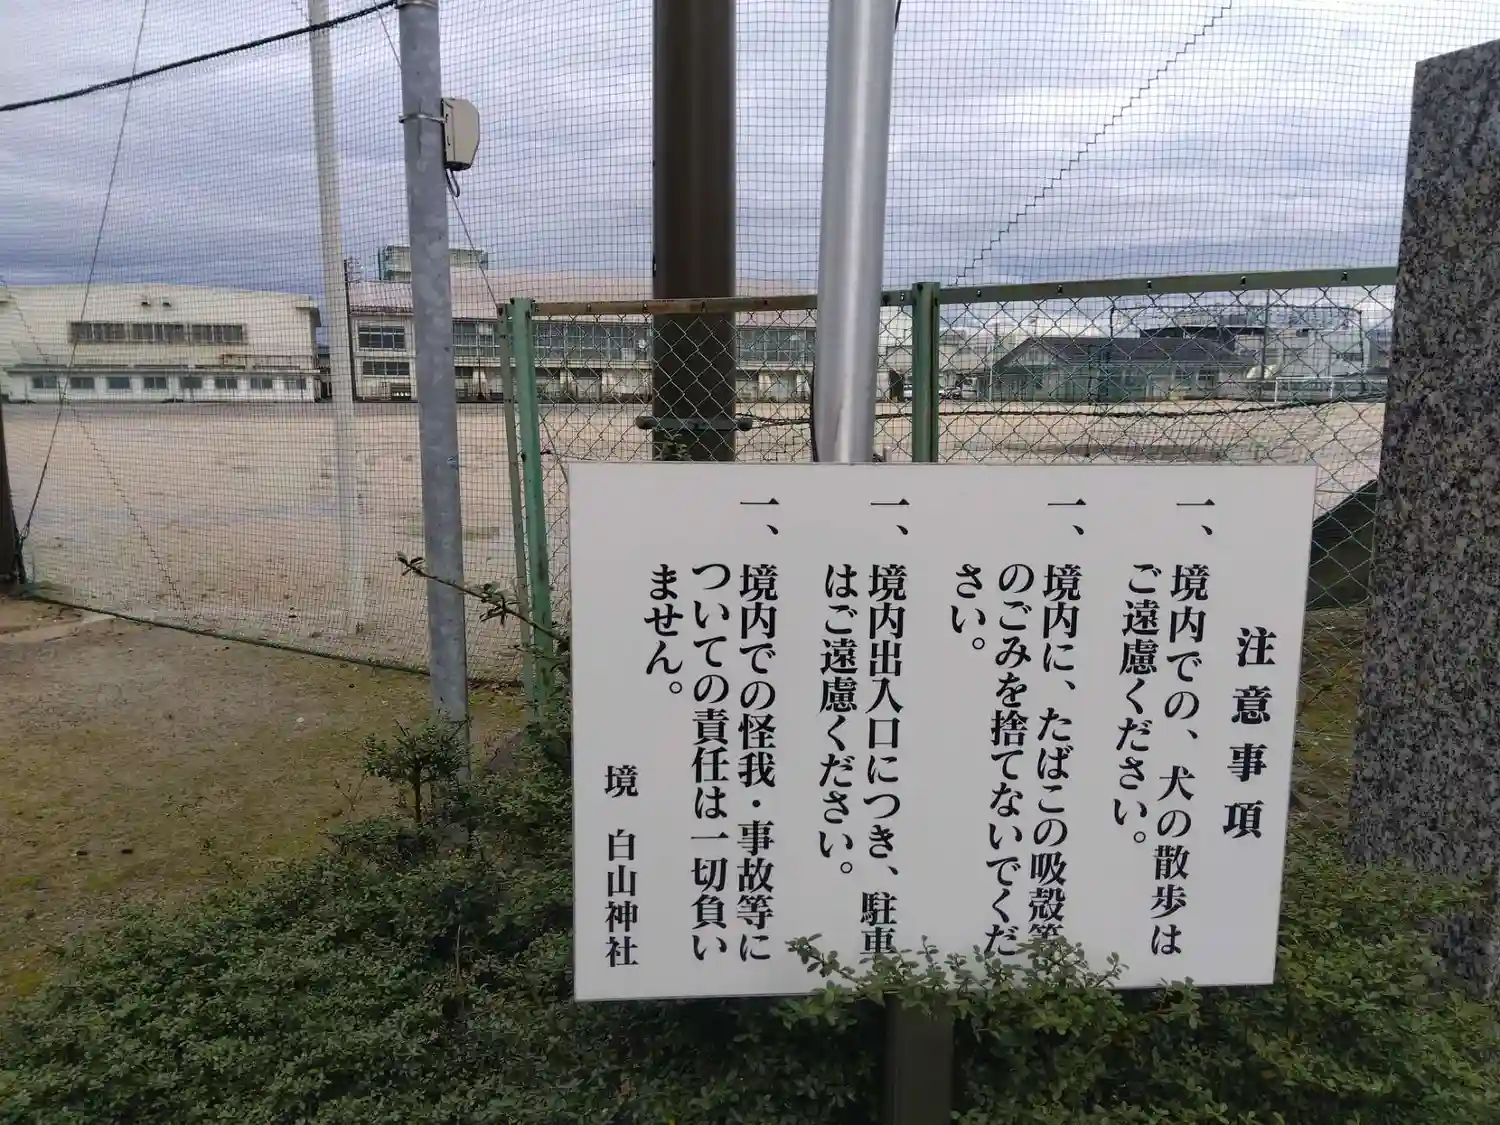 注意事項
一、境内での、犬の散歩は
ご遠慮ください。
一、境内に、たばこの吸殻等
のごみを捨てないでくだ
さい。
一、境内出入口につき、駐車
はご遠慮ください。
一、境内での怪我・事故等に
ついての責任は一切負い
ません。
境 白山神社